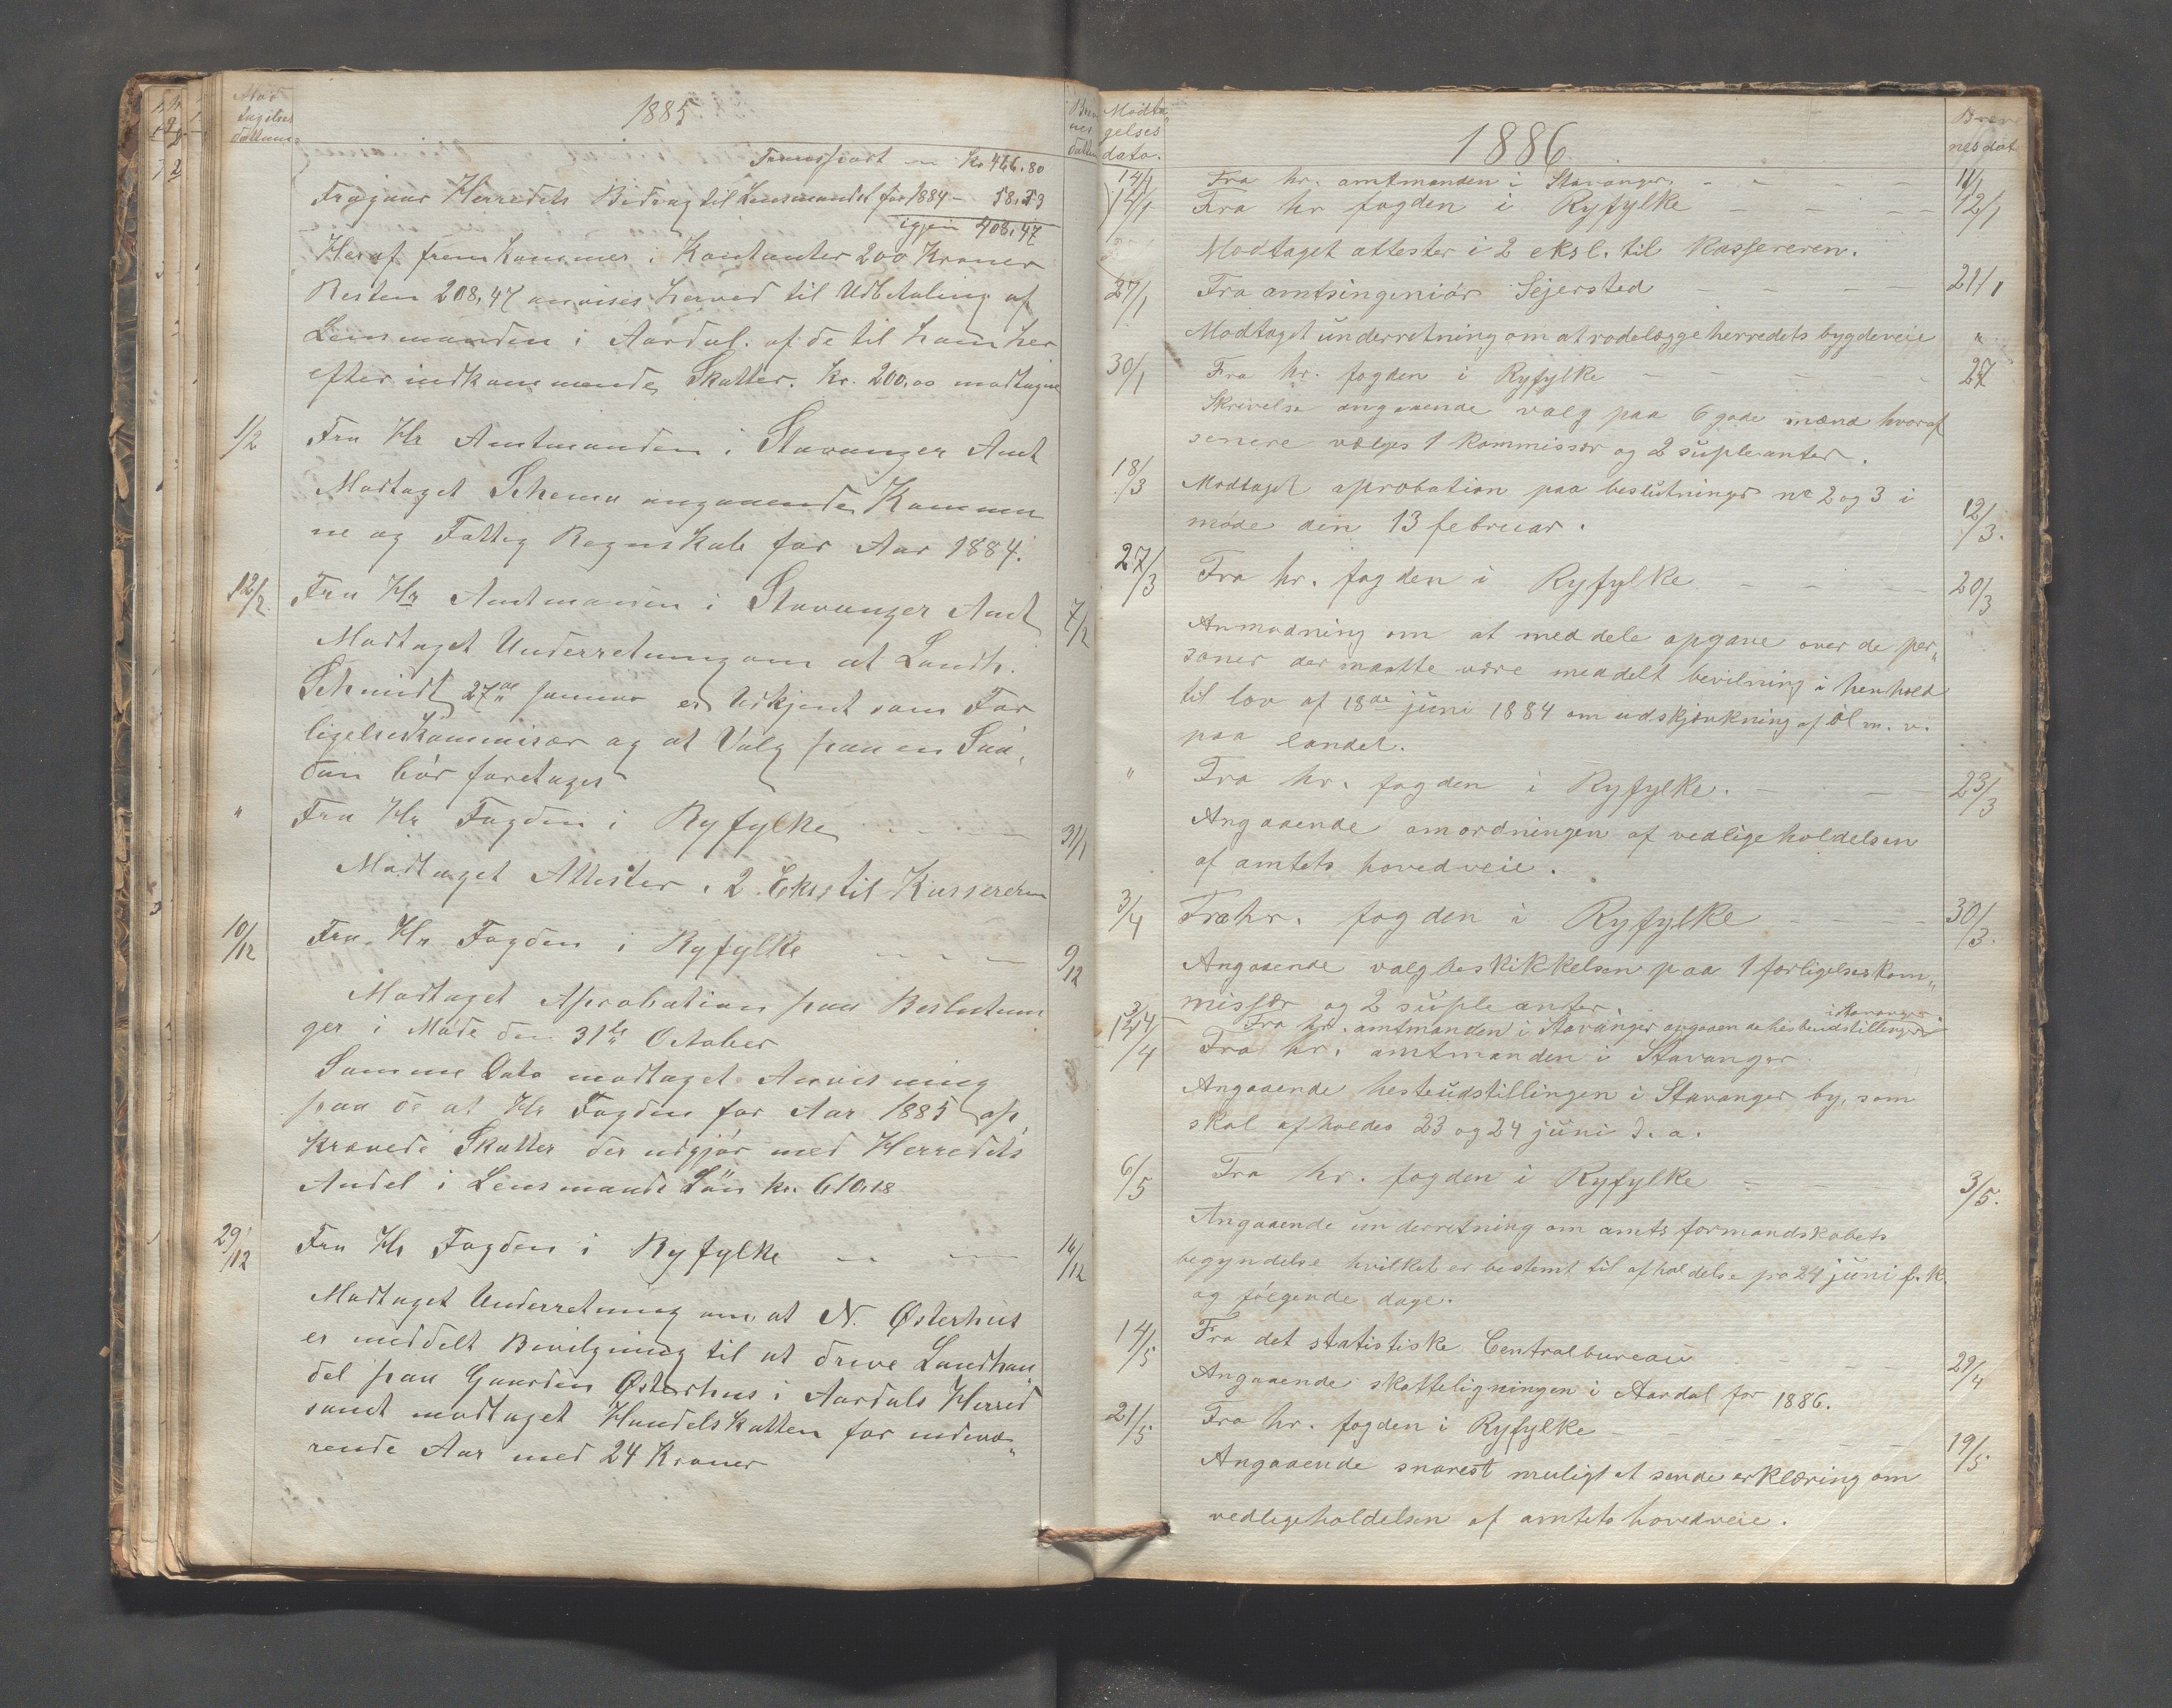 Mod
tagelses
dattum
1885
Brev
nes
dattum
Transport — Kr 466.80
Fragaar Herredets Bidrag til Lensmandsl for 1884 — 58,33
igjen 408,47
Heraf fremkommer i Kontanter 200 Kroner
Resten 208,47 anvises herved til Udbetaling af
Lensmanden i Aardal. af de til ham her
efter indkommende Skatter. Kr. 200,00 modtagne
1/2 Fra Hr Amtmanden i Stavanger Amt
Modtaget Schema angaaende Kommu
ne og Fattig Regnskab for Aar 1884.
12/2 Fra Hr Amtmanden i Stavanger Amt 7/2
Modtaget Underretning om at Landh.
Schmidt 27de er Udkjent som For
ligelseskommisær og at Valg paa en Saa,
dan bör foretages
" Fra Hr Fogden i Ryfylke — — — 31/1
Modtaget Attester i 2 Eks. til Kassereren
10/12 Fra Hr Fogden i Ryfylke — — — 9/12
Modtaget Aprobation paa Beslutnin
ger i Möde den 31te October
Samme Dato modtaget Anvisning
paa de at Hr Fogden for Aar 1885 op,
krævede Skatter der udgjör med Herredets
Andel i Lensmands Lön kr. 610,18
29/12 Fra Hr Fogden i Ryfylke — — 14/12
Modtaget Underretning om at N. Østerhus
er meddelt Bevilgning til at drive Landhan
del paa Gaarden Østerhus i Aardals Herred
samt modtaget Handelskatten for indevæ„
rende Aar med 24 Kroner
Modta„
gelses
dato.
1886
Breve
nes dat
14/1 Fra hr. amtmanden i Stavanger. — — — — 11/1
14/1 Fra hr fogden i Ryfylke — — — — 12/1
Modtaget attester i 2 eksl. til Kassereren.
27/1 Fra amtsingeniör Sejersted — — — — 21/1
Modtaget underretning om at rodelægge herredets bygdeveie "
30/1 Fra hr. fogden i Ryfylke — — — — — 27
Skrivelse angaaende valg paa 6 gode mænd hvoraf
senere vælges 1 kommissær og 2 supleanter.
18/3 Modtaget aprobation paa beslutninger no 2 og 3 i
möde den 13 februar. 12/3.
27/3 Fra hr. fogden i Ryfylke — — — — 20/3
Anmodning om at meddele opgave over de per„
soner der maatte være meddelt bevilning i henhold
til lov af 18de juni 1884 om udskjænkning af öl m. v.
paa landet.
" Fra hr. fogden i Ryfylke. — — — 23/3
Angaaende omordningen af vedligeholdelsen
af amtets hovedveie.
3/4 Fra hr. fogden i Ryfylke — — — 30/3.
Angaaende valgbeskikkelsen paa 1 forligelseskom„
missær og 2 supleanter.
3/4 Fra hr. amtmanden i Stavanger angaaende hesteudstillingen i Stavanger
12/4 Fra hr. amtmanden i Stavanger.
Angaaende hesteudstillingen i Stavanger by, som
skal afholdes 23 og 24 juni d. a.
6/5 Fra hr. fogden i Ryfylke — — — 3/5.
Angaaende underretning om amts formandskabets
begyndelse hvilket er bestemt til afholdelse pa 24 juni f. k.
og fölgende dage.
14/5 Fra det statistiske Centralbureau — — — 29/4
Angaaende skatteligningen i Aardal for 1886.
21/5 Fra hr. fogden i Ryfylke — — — — — 19/5
Angaaende snarest muligt at sende erklæring om
vedligeholdelsen af amtets hovedveie.